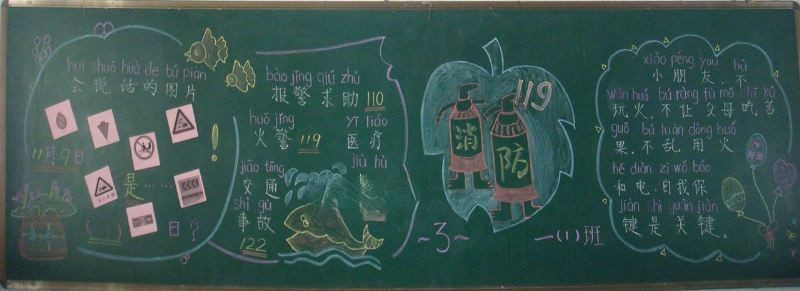 huì shuō huà de tú piàn
会说话的图片
11月9日
是……
( )日?
bào jǐng qiú zhù
报警求助 110
huǒ jǐng yī liáo
火警 119 医疗
jiāo tōng jiù hù
交通
shì gù
事故
122
消
防
119
~3~
一(1)班
xiǎo péng yǒu bù
小朋友,不
wán huǒ bú ràng fù mǔ chī kǔ
玩火,不让父母吃苦
guǒ bú luàn dòng huǒ
果,不乱用火
hé diàn zì wǒ bǎo
和电,自我保
jiàn shì guān jiàn
键是关键.